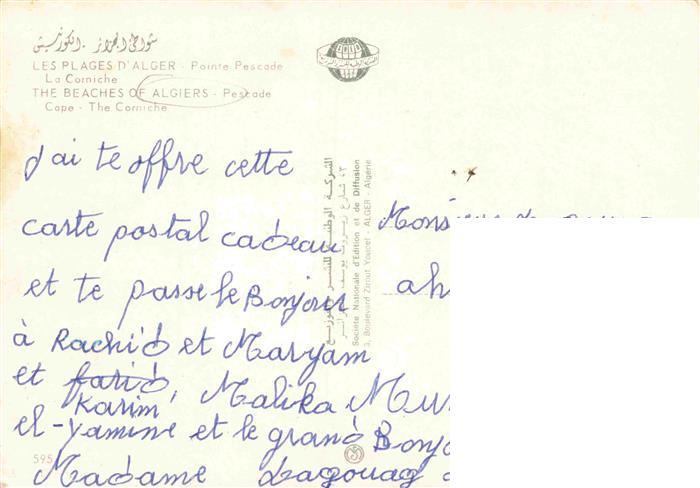 شواطئ الجزائر - الكورنيش
LES PLAGES D'ALGER - Pointe Pescade
La Corniche
THE BEACHES OF ALGIERS - Pescade
Cape - The Corniche
J'ai te offre cette
carte postal cadeau
et te passe le Bonjour
à Rachid et Maryam
et farid
Karim, Malika
el-yamine et le grand
Madame
الشركة الوطنية للنشر والتوزيع
٣، شارع زيروت يوسف - الجزائر
Societe Nationale d'Edition et de Diffusion
3, Boulevard Zirout Youcef - ALGER - Algérie
ah
595